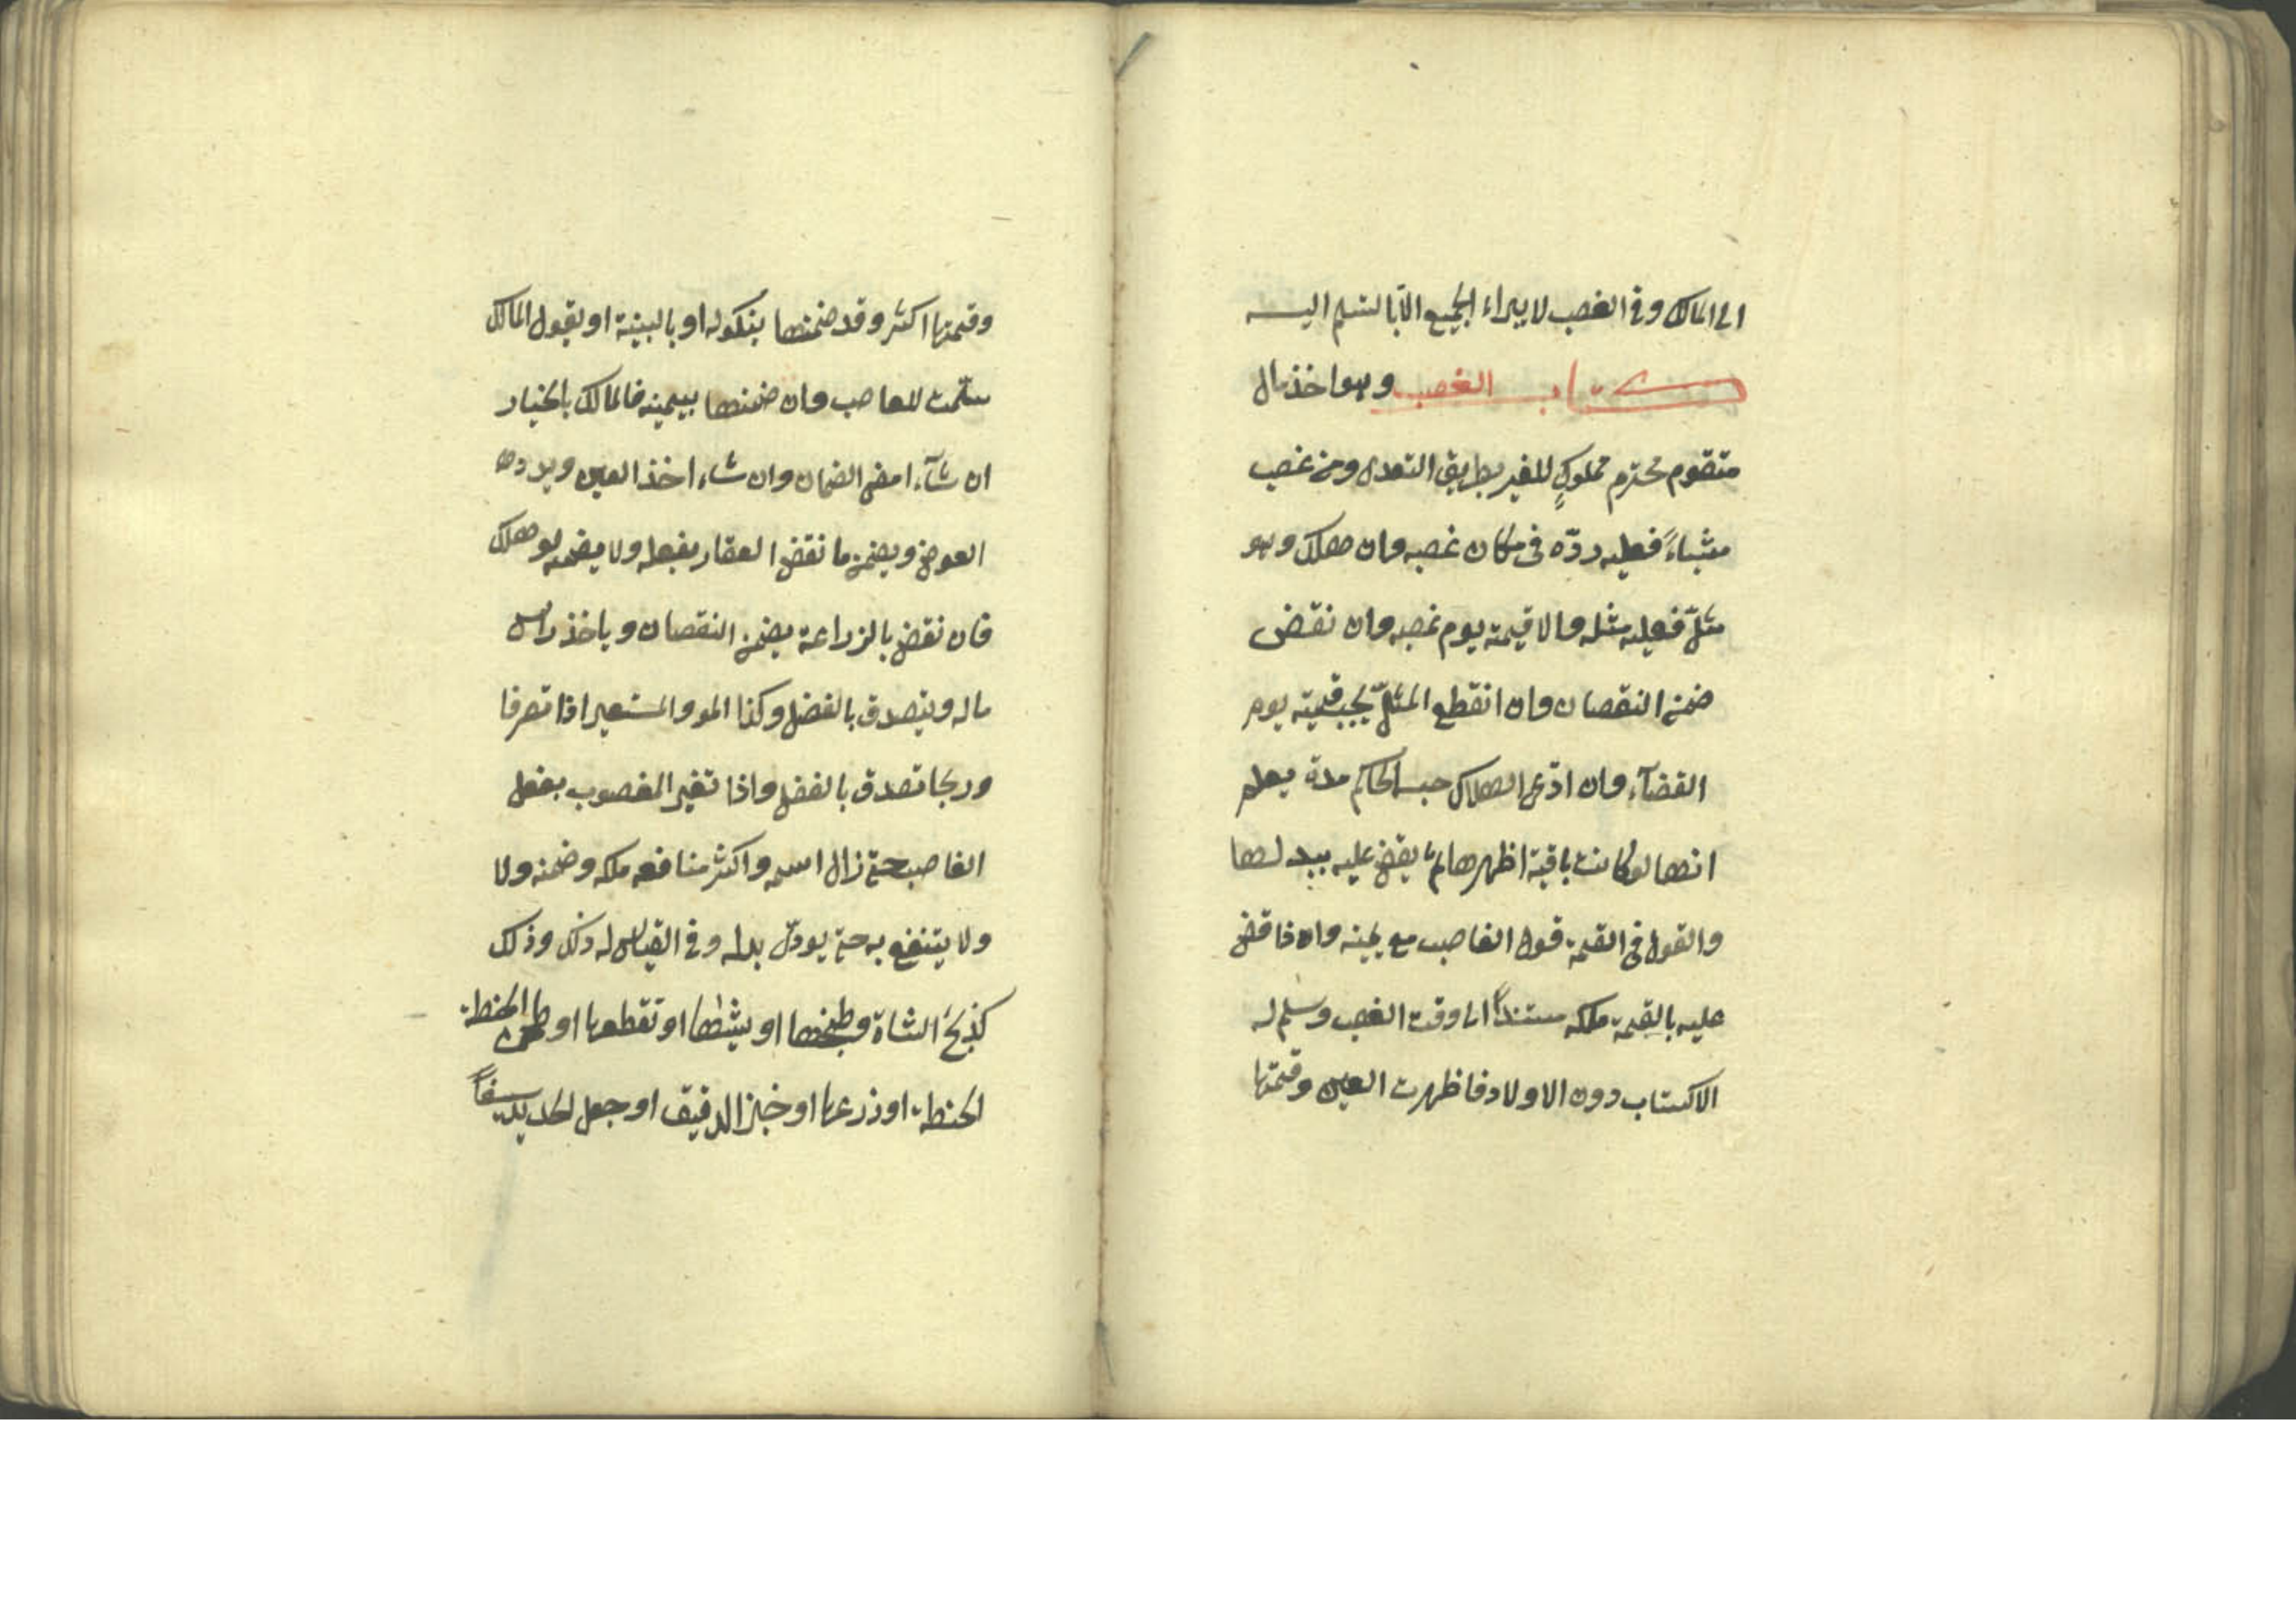 الى المالك وفي الغصب لا يبراء الجميع الا بالتسليم اليه
كتاب الغصب وهو اخذ مال
متقوم محترم مملوكٍ للغير بطريق التعدى ومن غصب
شياءً فعليه ردّه فى مكان غصبه وان هلك وهو
مثلىّ فعليه مثله والا قيمته يوم غصبه وان نقض
ضمن النقصان وان انقطع المثلىّ يجب قيمته يوم
القضآء وان ادّعى الهلاك حبسه الحاكم مدة يعلم
انها لو كانت باقية اظهرها ثم يقضى عليه ببدلها
والقول فى القيمة قول الغاصب مع يمينه واذا قضى
عليه بالقيمة ملكه مستنداً الى وقت الغصب وسلم له
الاكتساب دون الاولاد فاظهرت العين وقيمتها
وقيمتها اكثر وقد ضمنها بنكوله او بالبينة او بقول المالك
سلّمت للغاصب وان ضمنها بيمينه فالمالك بالخيار
ان شآء امضى الضمان وان شاء اخذ العين ويردد
العوض ويضمن ما نقض العقار بفعله ولا يضمنه لو هلك
فان نقض بالزراعة يضمن النقصان وياخذ راس
ماله ويتصدق بالفضل وكذا المو والمستعير اذا تصرفا
وربحا تصدق بالفضل واذا تغير المغصوب بفعل
الغاصب حتى زال اسمه واكثر منافعه ملكه وضمنه ولا
ولا يتنفع به حتى يودّى بدله وفي القياس له ذلك وذلك
كذبح الشاة وطبخها او يشئها او تقطعها او طحن الحنطة
الحنطة او زرعها او خبز الدقيق او جعل الحديد سيفاً